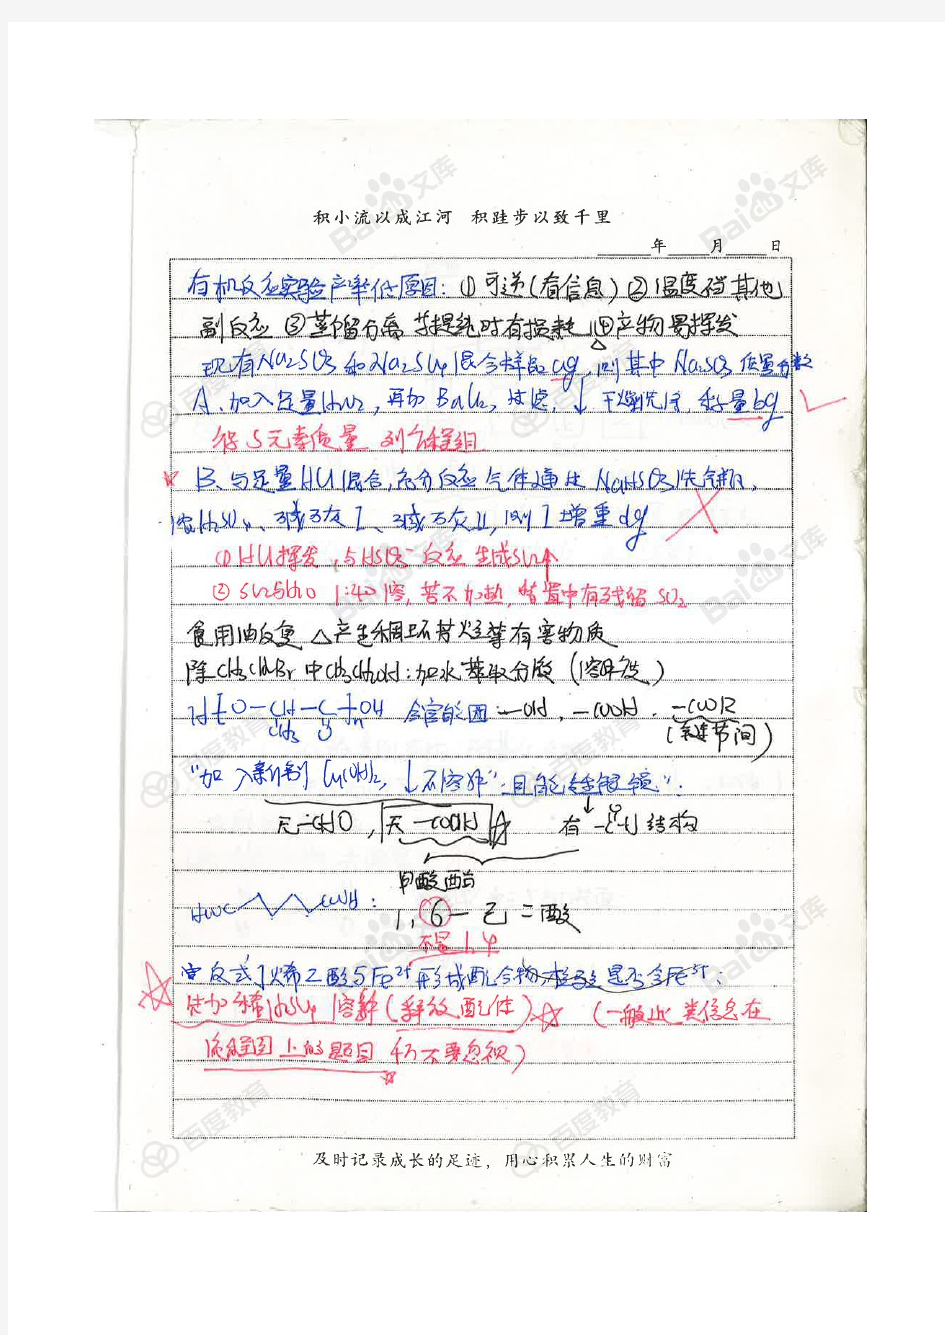 积小流以成江河 积跬步以致千里
年 月 日
有机反应实验产率低原因：①可逆(看信息) ②温度 其他
副反应 ③蒸馏分离等提纯时有损耗 ④产物易挥发
现有Na2SO3和Na2SO4混合样品ag，则其中Na2SO3质量分数
A、加入足量H2O2，再加BaCl2，过滤，↓干燥 ，称量bg
S元素质量 列方程组
B、与足量HCl混合，充分反应气体通过NaHSO3洗气瓶，
浓H2SO4、碱石灰I、碱石灰II，则I增重dg
①HCl挥发，与HSO3⁻反应生成SO2↑
②SO2与H2O 1:40溶，若不加热，装置中有残留SO2
食用油反复△产生稠环芳烃等有害物质
除CH3CH2Br中CH3CH2OH：加水萃取分液(溶解度)
H[O-CH-C]nOH 含官能团 -OH，-COOH．-COOR
CH3 O (链节间)
"加入新制Cu(OH)2，↓不溶解"；且能 银镜"：
无-CHO，无-COOH 有 -C-H结构
甲酸酯
HOOC COOH：1，6-己二酸
不是1,4
富反式丁烯二酸与Fe2+形成配合物 是否含Fe3+：
先加稀H2SO4溶解(释放配体) (一般此类信息在
流程图上的题目 千万不要忽视)
及时记录成长的足迹，用心积累人生的财富
Baidu文库
百度教育